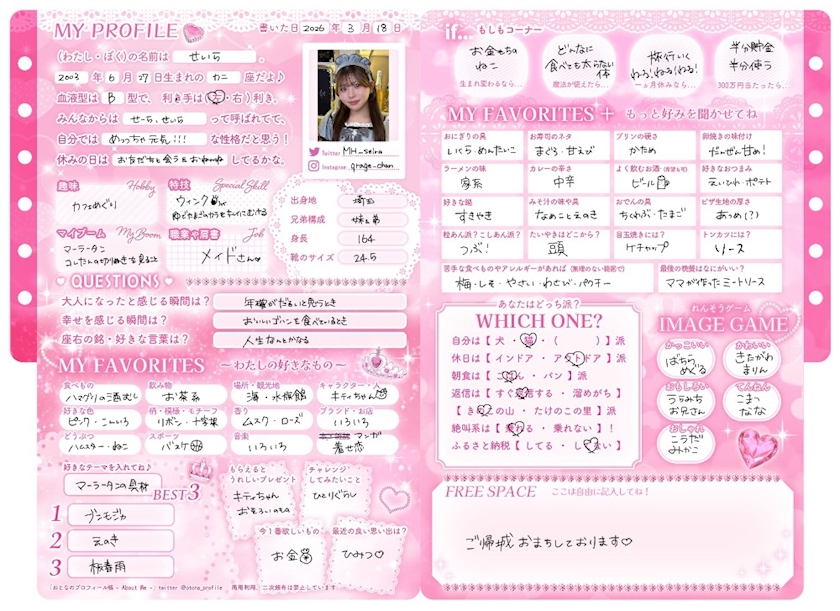 MY PROFILE
書いた日 2026 年 3 月 18 日
(わたし・ぼく)の名前は せいら 。
2003 年 6 月 27 日生まれの カニ 座だよ♪
血液型は B 型で、利き手は(左・右)利き。
みんなからは せーら、せいら って呼ばれてて、
自分では めっちゃ元気!!! な性格だと思う!
休みの日は おともだちと会う&おねんね してるかな。
Twitter MH_seira
Instagram
趣味 Hobby
カフェめぐり
特技 Special Skill
ウィンク
ゆでたまごのカラをキレイにむける
マイブーム My Boom
マーラータン
コレたんの切りぬきを見ること
職業や肩書 Job
メイドさん
出身地 埼玉
兄弟構成 妹&弟
身長 164
靴のサイズ 24.5
QUESTIONS
大人になったと感じる瞬間は? 年確がだるいと思うとき
幸せを感じる瞬間は? おいしいゴハンを食べているとき
座右の銘・好きな言葉は? 人生なんとかなる
MY FAVORITES 〜わたしの好きなもの〜
食べもの ハマグリの酒むし
飲み物 お茶系
場所・観光地 海・水族館
キャラクター・人 キティちゃん
好きな色 ピンク・こんいろ
柄・模様・モチーフ リボン・十字架
香り ムスク・ローズ
ブランド・お店 いろいろ
どうぶつ ハムスター・ねこ
スポーツ バスケ
音楽 いろいろ
マンガ 着せ恋
好きなテーマを入れてね♪
マーラータンの具材 BEST3
1 ブンモジャ
2 えのき
3 板春雨
もらえるとうれしいプレゼント
キティちゃん
おそろいのもの
チャレンジしてみたいこと
ひとりぐらし
今1番欲しいもの
お金
最近の良い思い出は?
ひみつ♡
「おとなのプロフィール帳 - About Me -」twitter @otona_profile 再商利用、二次頒布は禁止しています。
if... もしもコーナー
お金もちの
ねこ
生まれ変わるなら…
どんなに
食べても太らない
体
魔法が使えたら…
旅行いく
ねる!ねる!ねる!
一ヵ月休みなら…
半分貯金
半分使う
300万円当たったら…
MY FAVORITES + もっと好みを聞かせてね
おにぎりの具 いくら・めんたいこ
お寿司のネタ まぐろ・甘えび
プリンの硬さ かため
卵焼きの味付け だんぜん甘め!
ラーメンの味 家系
カレーの辛さ 中辛
よく飲むお酒 ビール
好きなおつまみ えいひれ・ポテト
好きな鍋 すきやき
みそ汁の味や具 なめことえのき
おでんの具 ちくわぶ・たまご
ピザ生地の厚さ あつめ(?)
粒あん派?こしあん派? つぶ!
たいやきはどこから? 頭
目玉焼きには? ケチャップ
トンカツには? ソース
苦手な食べものやアレルギーがあれば(無理のない範囲で)
梅・レモ・やさい・わさび・パクチー
最後の晩餐はなにがいい?
ママが作ったミートソース
あなたはどっち派?
WHICH ONE?
自分は【 犬・猫・( )】派
休日は【 インドア・アウトドア 】派
朝食は【 ごはん・パン 】派
返信は【 すぐ返信する・溜めがち 】
【 きのこの山・たけのこの里 】派
絶叫系は【 乗れる・乗れない 】!
ふるさと納税【 してる・してない 】
れんそうゲーム
IMAGE GAME
かっこいい
ばちら
めぐる
かわいい
きたがわ
まりん
おもしろい
うらみち
お兄さん
てんねん
こまつ
なな
おしゃれ
こうだ
みかこ
FREE SPACE ここは自由に記入してね!
ご帰城おまちしております♡